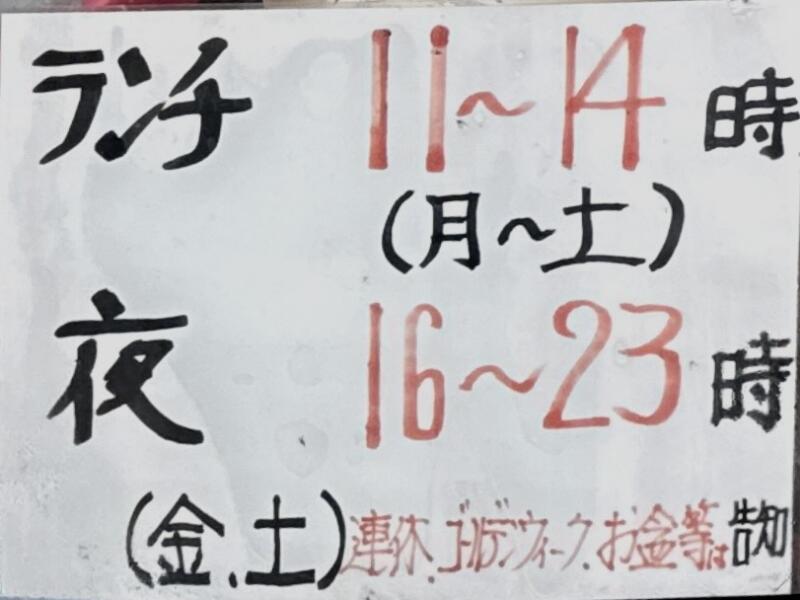 ランチ 11～14時
(月～土)
夜 16～23時
(金、土)連休、ゴールデンウィーク、お盆等は告知